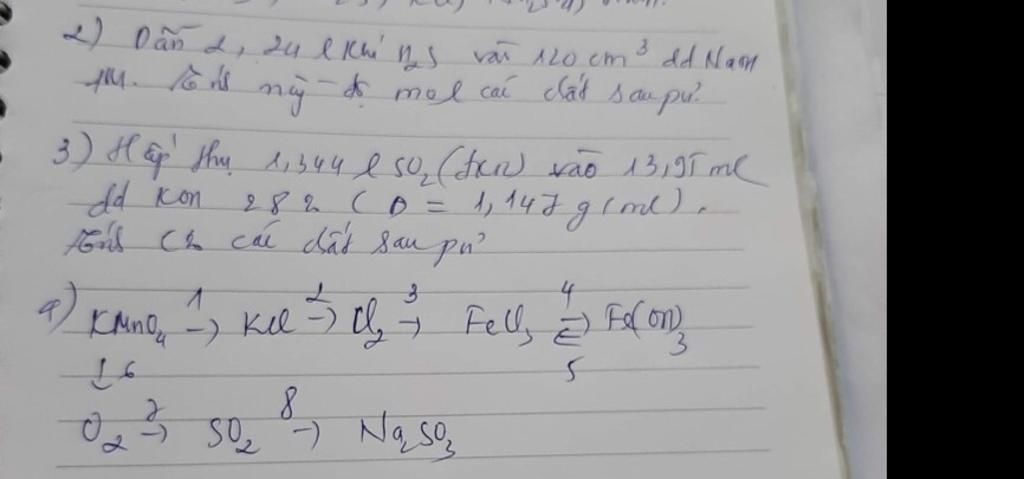 2) Dẫn 2,24 l khí H₂S vào 120 cm³ dd NaOH
1M. Tính mol các chất sau pư?
3) Hấp thụ 1,344 l SO₂ (đkc) vào 13,95 ml
dd KOH 28% (D = 1,147 g/ml).
Tính C% các chất sau pư?
4) KMnO₄ →¹ KCl →² Cl₂ →³ FeCl₃ ⇌ Fe(OH)₃
4
5
↓6
O₂ →⁷ SO₂ →⁸ Na₂SO₃